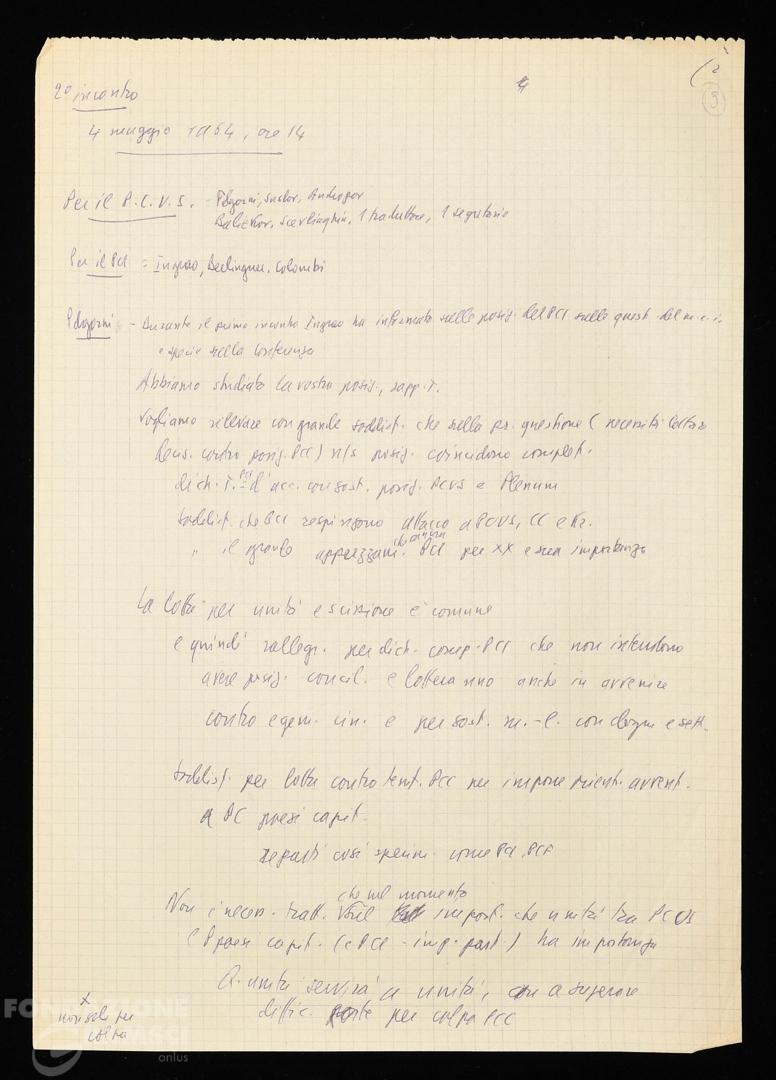 2
9
2º incontro
4 maggio 1964, ore 14
Per il P.C.U.S. - Pdgorni, Suslov, Andropov
1 traduttore, 1 segretario
Per il PCI = Ingrao, Berlinguer, Colombi
Pdgorni - Durante il primo incontro Ingrao ha informato sulle posiz. del PCI sulle quest. del m.c.i.
e specie sulla conferenza
Abbiamo studiato la vostra posiz., rapp. T.
Vogliamo rilevare con grande soddisf. che sulla pr. questione (necessità lotta
decis. contro posiz. PCC) n/s posiz. coincidono complet.
dich. T. PCI d'acc. con sost. posiz. PCUS e Plenum
soddisf. che PCI respingono attacco a PCUS, CC e Kr.
" il grande apprezzam. PCI per XX e sua importanza
La lotta per unità e scissione è comune
e quindi rallegr. per dich. comp. PCI che non intendono
avere posiz. concil. e lotteranno anche in avvenire
contro egem. cin. e per sost. m.-l. con dogm e sett.
soddisf. per lotta contro tent. PCC per imporre orient. avvent.
a PC paesi capit.
cosi sperim. come PCI, PCF
che nel momento
Non è necess. tratt. import. che unità tra PCUS
e P paesi capit. (e PCI - imp. part.) ha importanza
Q. unità servirà a unità, a superare
diffic. per colpa PCC
x
non solo per
colpa
FONDAZIONE
GRAMSCI
onlus